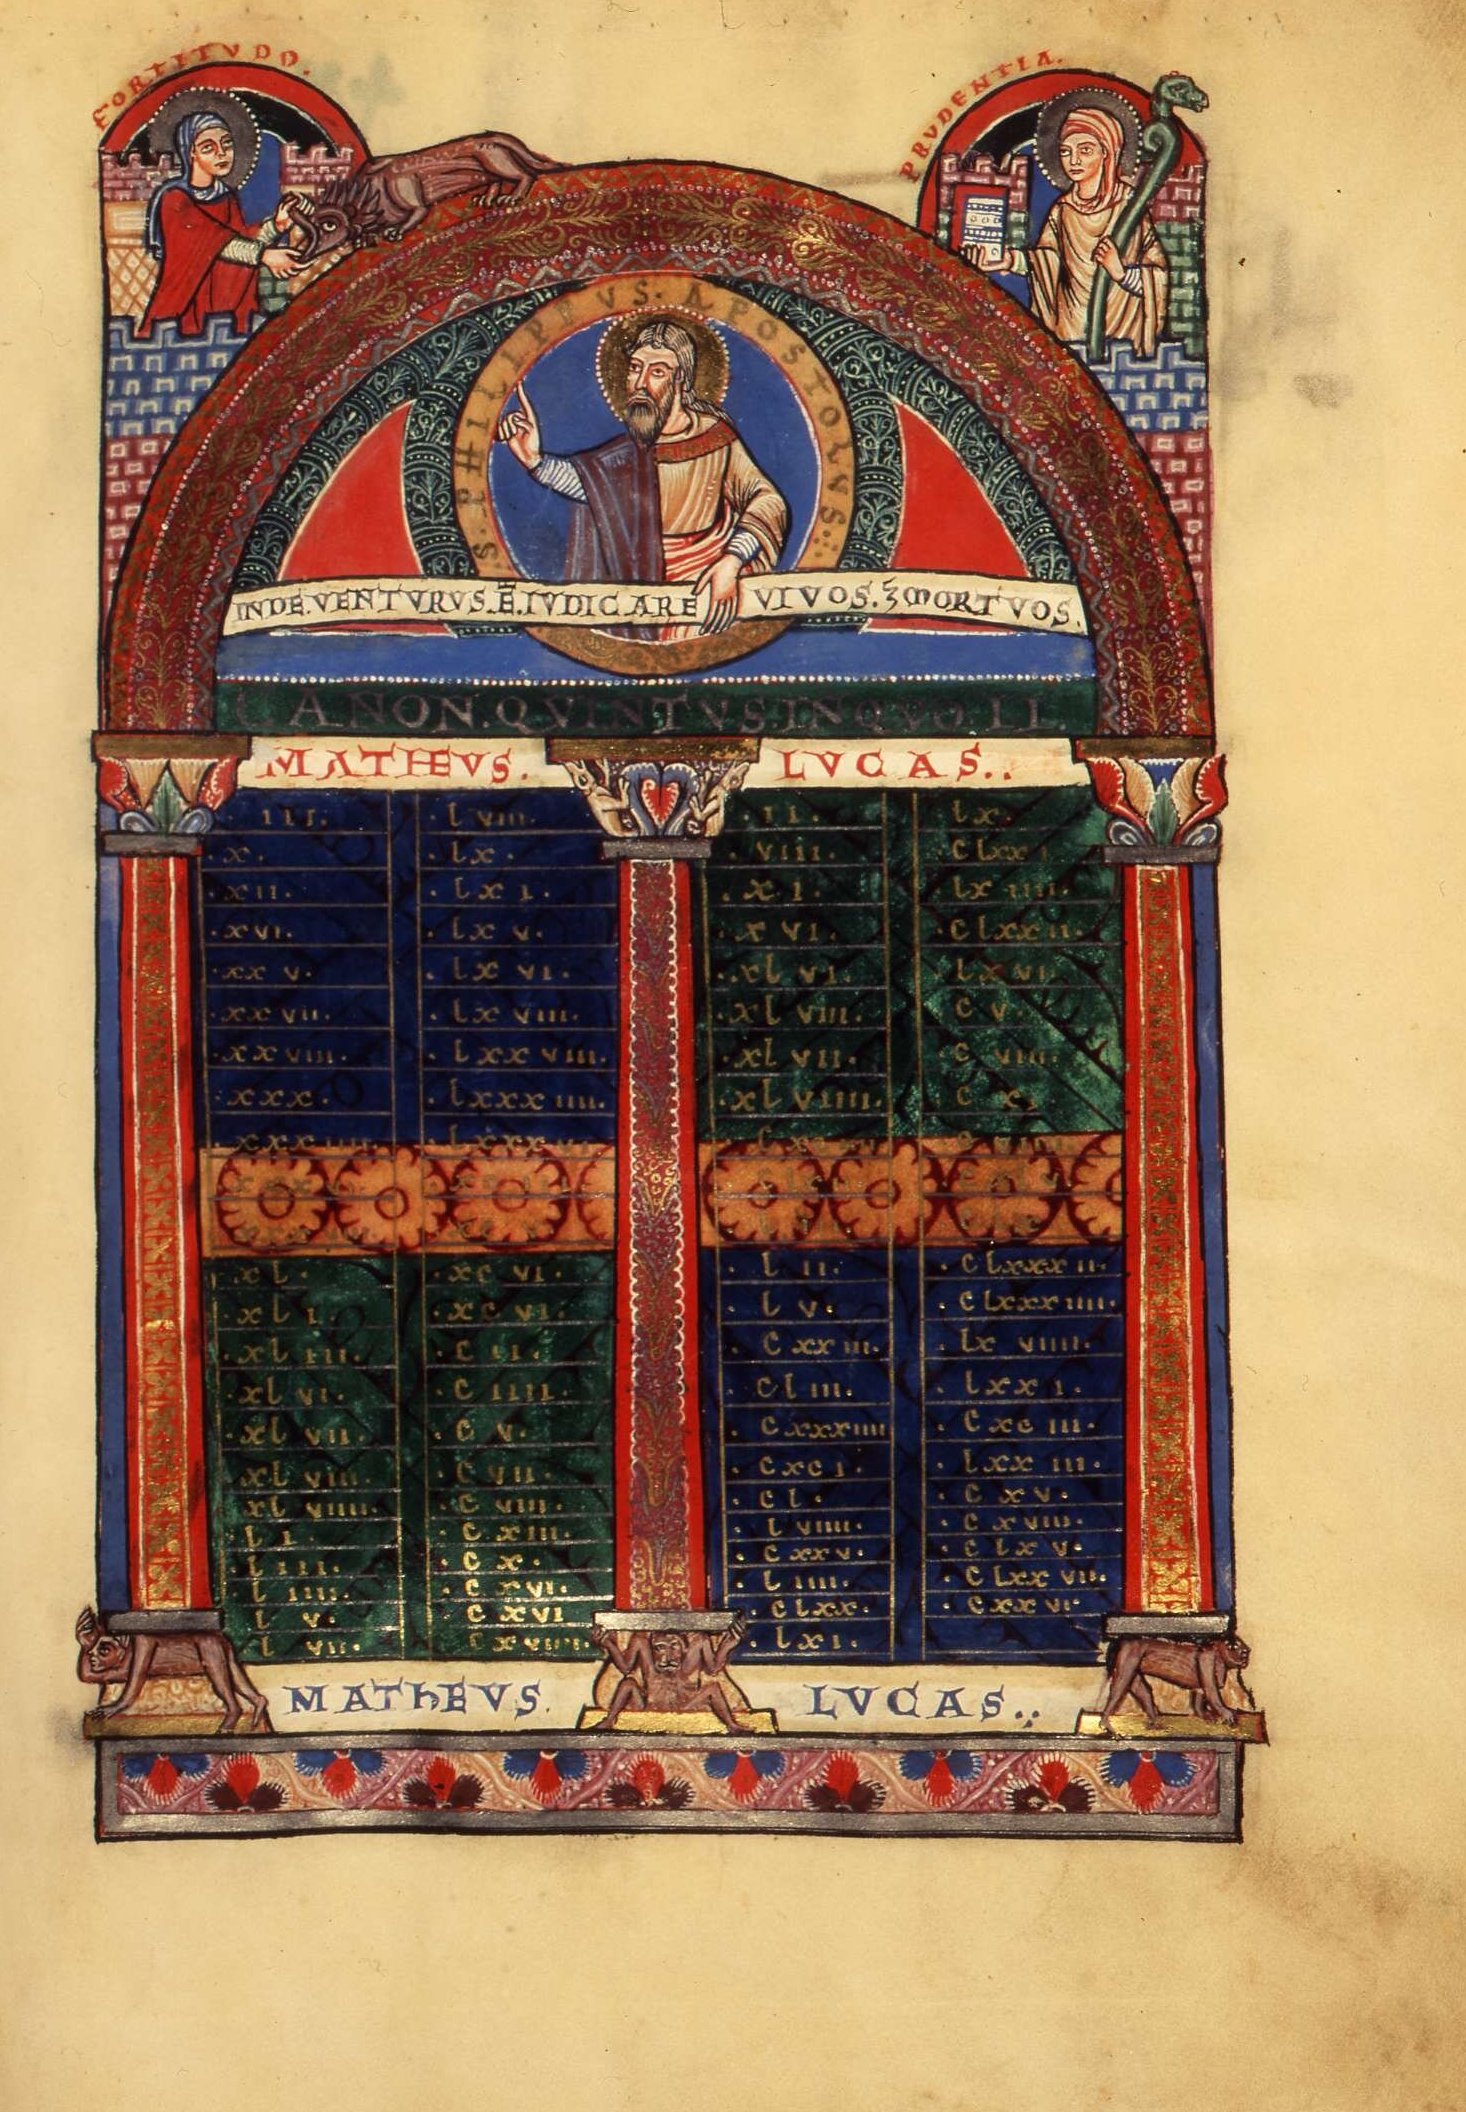 FORTITVDO.
PRVDENTIA.
S. PHILIPPVS. APOSTOLVS:
INDE.VENTVRVS.Ē.IVDICARE VIVOS.⁊ MORTVOS.
CANON.QVINTVS.IN QVO.II.
MATHEVS. LVCAS..
.III. .lviii. .II. lx.
.x. .lx. .viii.
.xii. .lxi. .xi. lxiiii.
.xvi. .lxv. .xvi. .clxxii.
.xxv. .lxvi. .xlvi. lxvi.
.xxvii. .lxviii. .xlviii. cv.
.xxviii. .lxxviii. .xlvii. cviii.
.xxx. .lxxxiiii. .xlviiii. cxi.
.xxxiiii.
.xl. .xcvi. .lii. .clxxxii.
.xli. .xcvi. .lv. .clxxxiiii.
.xliii. .cii. .cxxiii. .lxviiii.
.xlvi. .ciiii. .cliii. .lxxi.
.xlvii. .cv. .cxxxiiii .cxciii.
.xlviii. .cvii. .cxci. .lxxiii.
.xlviiii. .cviii. .cl. .cxv.
.li. .cxiii. .lviiii. .cxviii.
.liii. .cx. .cxxv. .clxv.
.liiii. .cxvi. .liiii. .clxxvii.
.lv. .cxvi .clxx. .cxxvi.
.lvii. .cxviiii. .lxi.
MATHEVS. LVCAS..